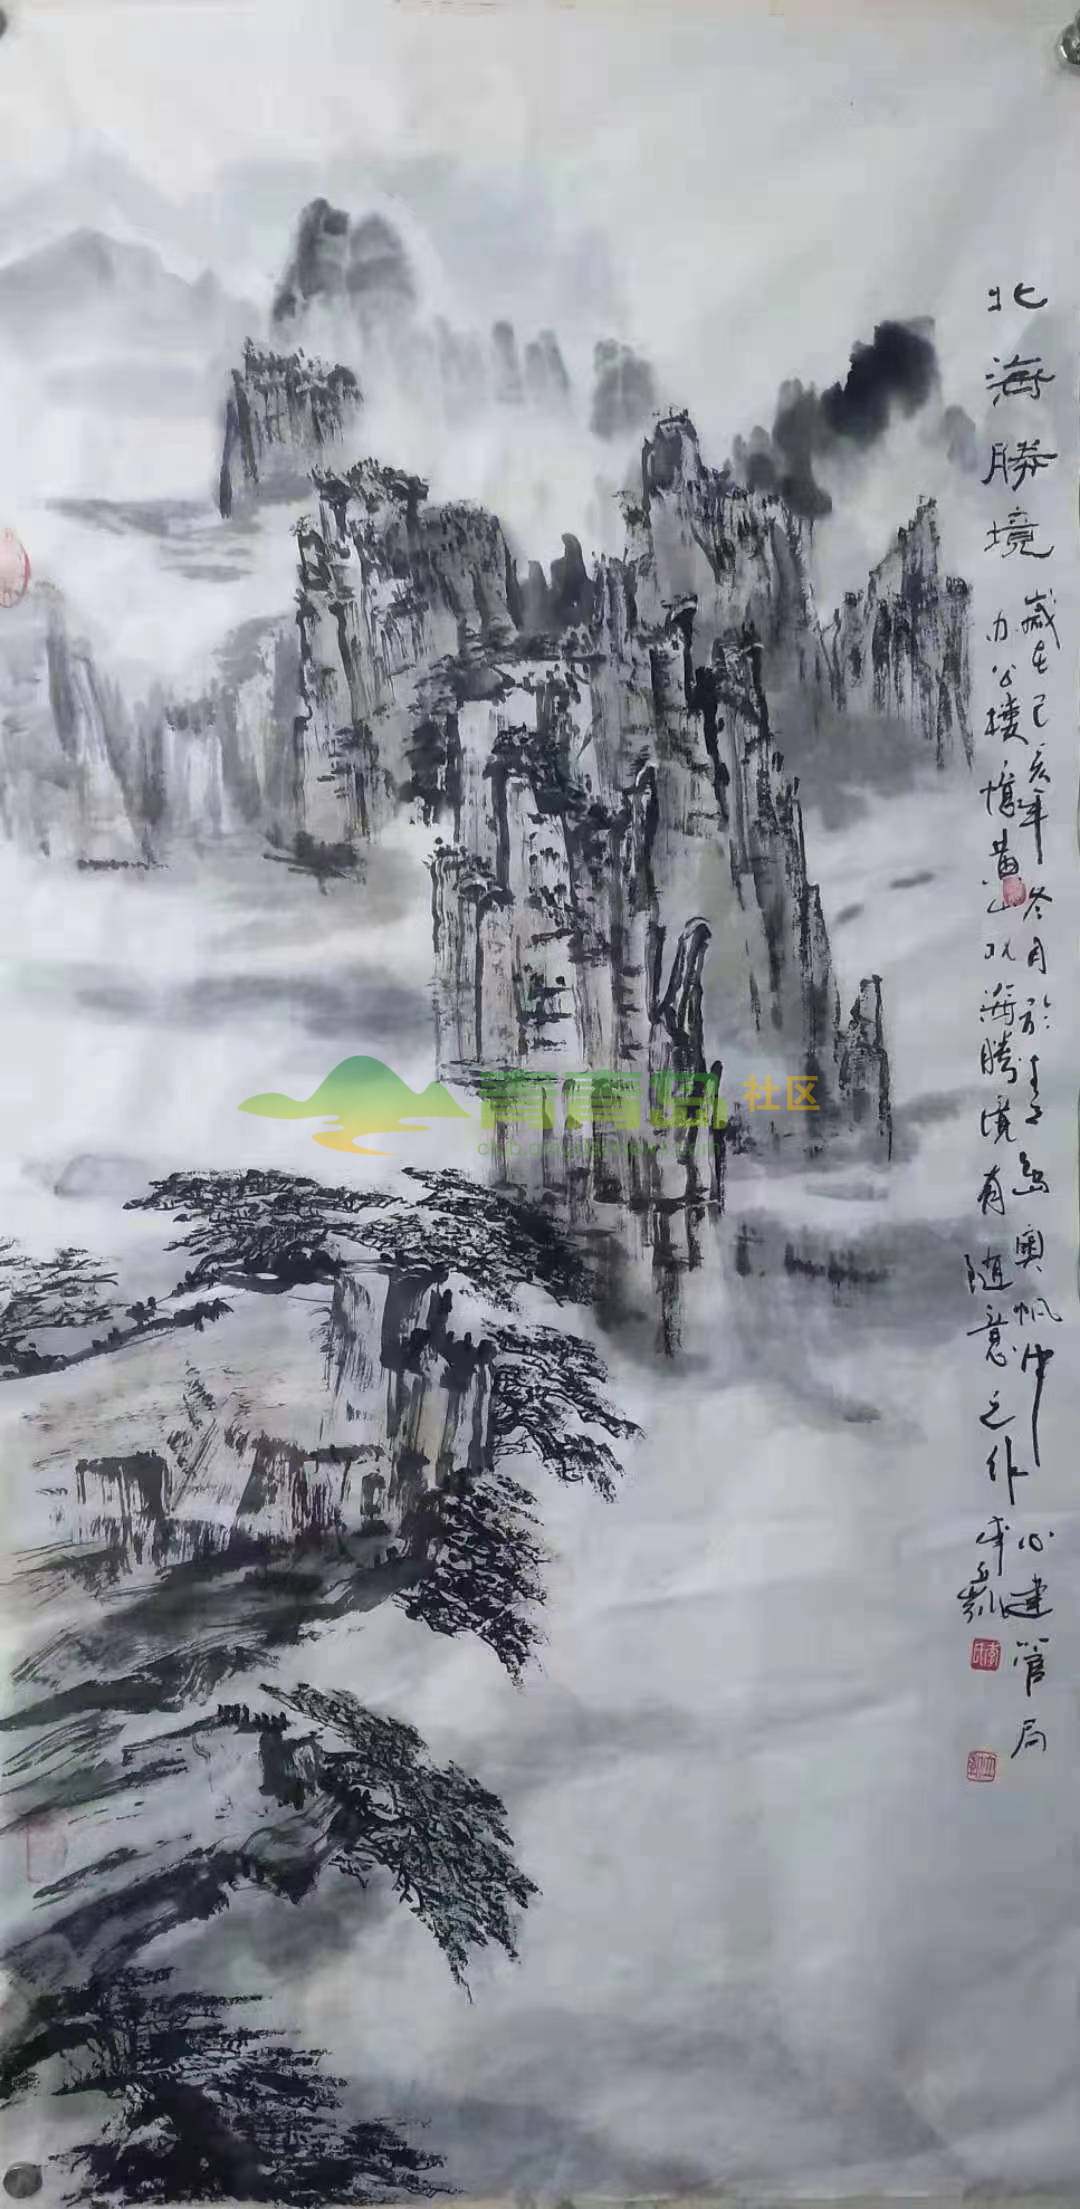 北海勝境
歲在己亥年冬月於青島奧帆中心建管局
办公樓憶黄山北海勝境有
随意之作
青青岛社区